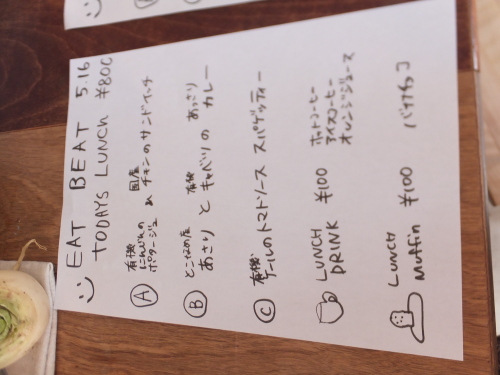 EAT BEAT 5.16
TODAYS LUNCH ¥800
有機 国産
A にんじんの ポタージュ & チキンのサンドイッチ
とこなめ産 有機
B あさりとキャベツの あっさりカレー
有機
C ケールのトマトソース スパゲッティー
LUNCH DRINK ¥100 ホットコーヒー
アイスコーヒー
オレンジジュース
LUNCH Muffin ¥100 バナナチョコ